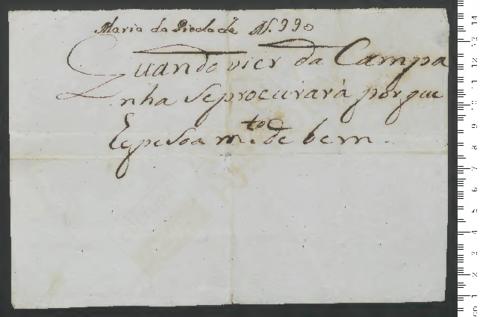 Maria da Piedade N. 990
Quando vier da Campa
nha se procurará por que
he pesoa mto. de bem.